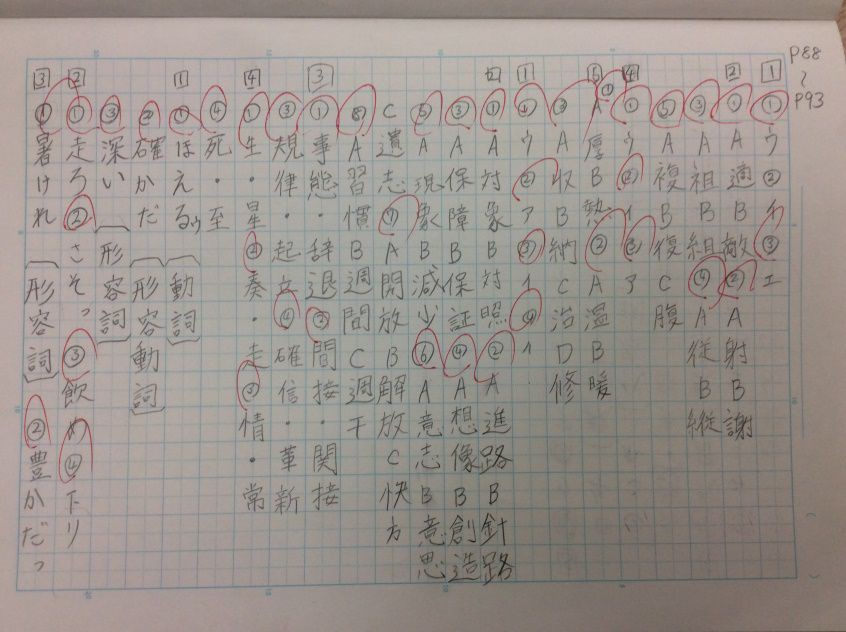 P88
〜
P93
1
①ウ②イ③エ
2
①A適B敵②A射B謝
③A祖B組④A従B縦
⑤A複B復C腹
4
①ウ②イ③ア
5
①A厚B熱②A温B暖
③A収B納C治D修
1
①ウ②ア③イ④イ
2
①A対象B対照②A進路B針路
③A保障B保証④A想像B創造
⑤A現象B減少⑥A意志B意思
C遺志⑦A開放B解放C快方
⑧A習慣B週間C週干
3
①事態・辞退②間接・関接
③規律・起立④確信・革新
4
①生・星②奏・走③情・常
④死・至
1
①ほえる(動詞)
②確かだ(形容動詞)
③深い(形容詞)
2
①走ろ②さそっ③飲め④下り
3
①暑けれ(形容詞)②豊かだっ